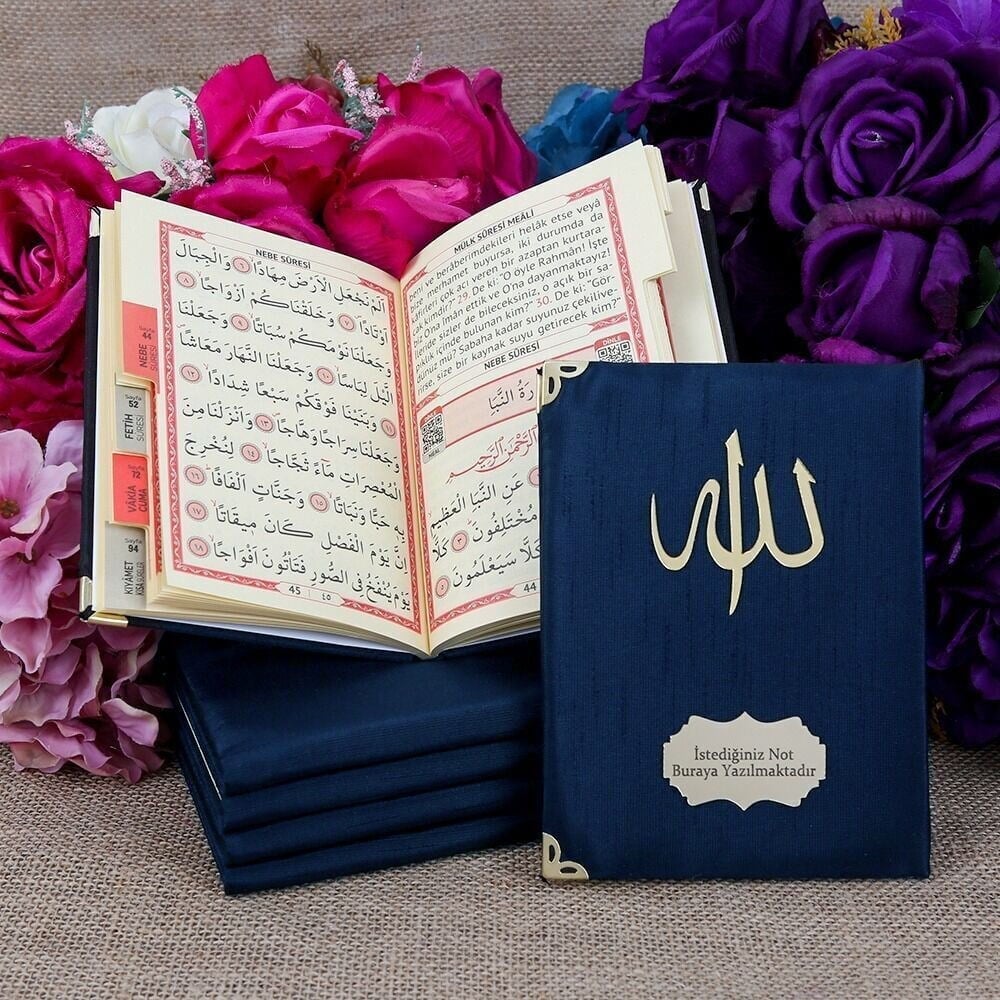 NEBE SÛRESİ
اَلَمْ نَجْعَلِ الْاَرْضَ مِهَادًاۙ ﴿٦﴾ وَالْجِبَالَ
اَوْتَادًاۙ ﴿٧﴾ وَخَلَقْنَاكُمْ اَزْوَاجًاۙ ﴿٨﴾
وَجَعَلْنَا نَوْمَكُمْ سُبَاتًاۙ ﴿٩﴾ وَجَعَلْنَا
الَّيْلَ لِبَاسًاۙ ﴿١٠﴾ وَجَعَلْنَا النَّهَارَ مَعَاشًاۖ
﴿١١﴾ وَبَنَيْنَا فَوْقَكُمْ سَبْعًا شِدَادًاۙ ﴿١٢﴾
وَجَعَلْنَا سِرَاجًا وَهَّاجًاۖ ﴿١٣﴾ وَاَنْزَلْنَا مِنَ
الْمُعْصِرَاتِ مَٓاءً ثَجَّاجًاۙ ﴿١٤﴾ لِنُخْرِجَ
بِهِ حَبًّا وَنَبَاتًاۙ ﴿١٥﴾ وَجَنَّاتٍ اَلْفَافًاۜ ﴿١٦﴾
اِنَّ يَوْمَ الْفَصْلِ كَانَ مِيقَاتًاۙ ﴿١٧﴾
يَوْمَ يُنْفَخُ فِي الصُّورِ فَتَأْتُونَ اَفْوَاجًاۙ ﴿١٨﴾
45 ٤٥
Sayfa
44
NEBE
SÛRESİ
Sayfa
52
FETİH
SÛRESİ
Sayfa
72
VÂKIA
CUMA
Sayfa
94
KIYÂMET
KISA SÛRELER
MÜLK SÛRESİ MEÂLİ
beni ve berâberimdekileri helâk etse veyâ
bize merhamet buyursa, iki durumda da
kâfirleri çok acı veren bir azaptan kurtara-
bilecek kimdir?" 29. De ki: "O öyle Rahmân! İşte
biz O'na îmân ettik ve O'na dayanmaktayız!
İleride sizler de bileceksiniz, o açık bir sa-
pıklık içinde bulunan kim?" 30. De ki: "Gör-
dünüz mü? Sabaha kadar suyunuz çekiliver-
irse, size bir kaynak suyu getirecek kim?"
NEBE SÛRESİ
DİNLE
سُورَةُ النَّبَأِ
DİNLE
MEAL
الرَّحْمٰنِ الرَّحِيمِ
عَنِ النَّبَأِ الْعَظِيمِ
مُخْتَلِفُونَ ﴿٣﴾ كَلَّا
كَلَّا سَيَعْلَمُونَ ﴿٥﴾
44
الله
İstediğiniz Not
Buraya Yazılmaktadır